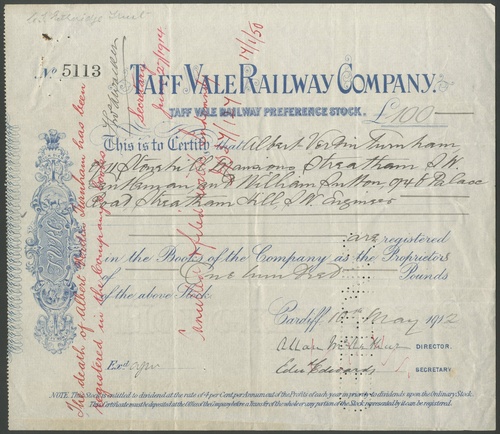 Nº 5113
TAFF VALE RAILWAY COMPANY.
TAFF VALE RAILWAY PREFERENCE STOCK. £100
This is to Certify that Albert Verdin Turnham
of 11 Mansions Streatham S.W.
Gentleman and William Sutton, of 48 Palace
Road Streatham Hill, S.W. Engineer
are registered
in the Books of the Company as the Proprietors
of One hundred Pounds
of the above Stock.
Cardiff 10th May 1912
DIRECTOR.
Exd
Edwards SECRETARY.
NOTE. This Stock is entitled to dividend at the rate of 4 per Cent. per Annum out of the Profits of each year in priority to dividends upon the Ordinary Stock.
This Certificate must be deposited at the Offices of the Company before a Transfer of the whole or any portion of the Stock represented by it can be registered.
The death of Albert Verdin Turnham has been
registered in the Company's Books
Secretary
27/1914
14/1/50